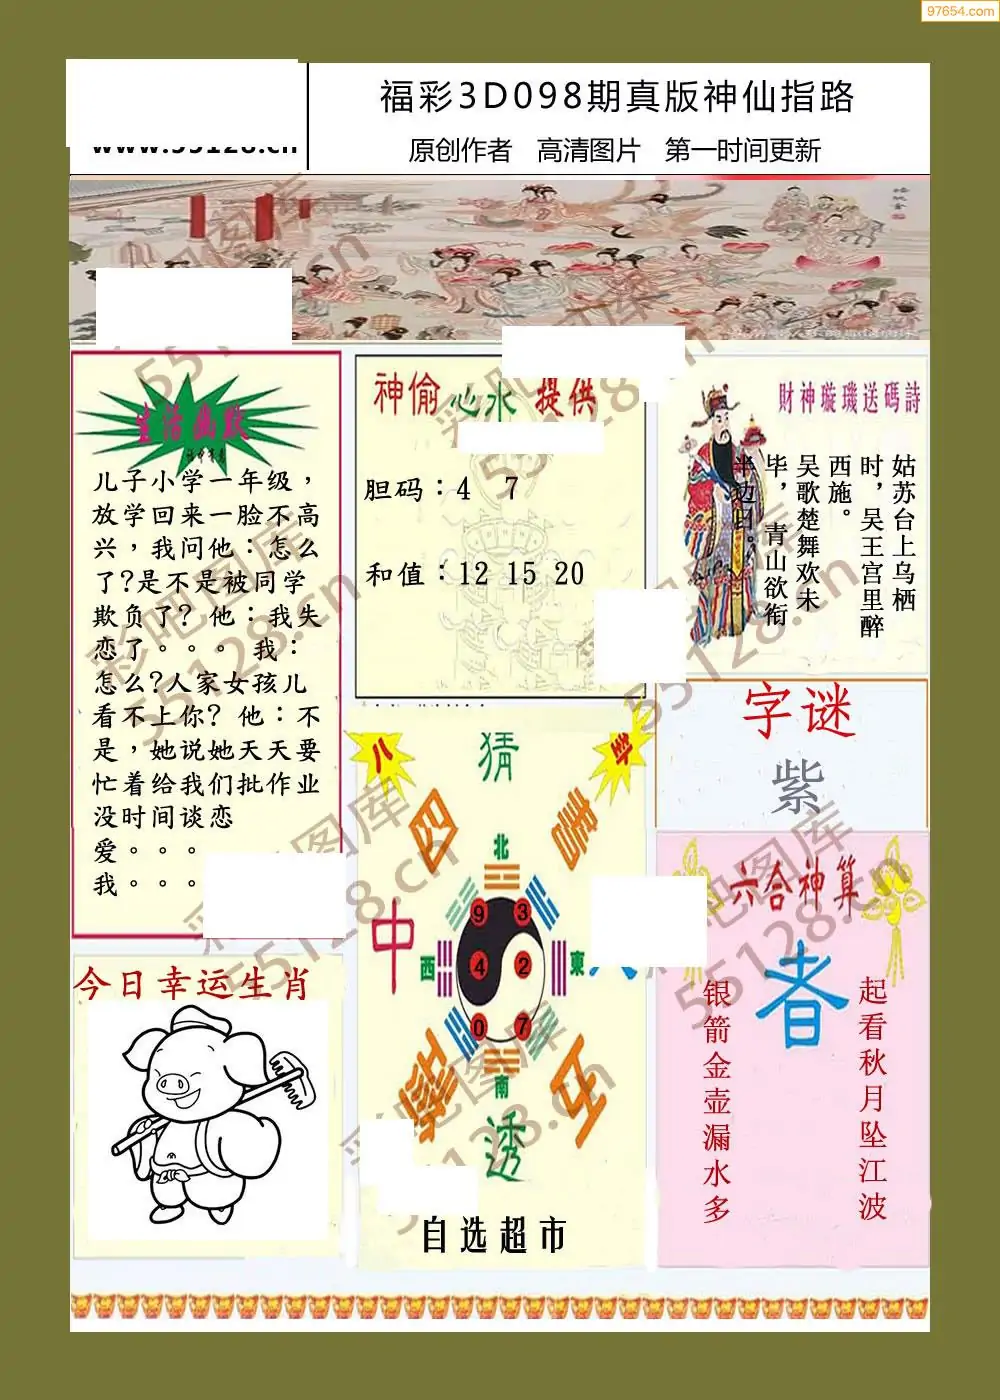 97654.com
福彩3D098期真版神仙指路
www.55128.cn
原创作者 高清图片 第一时间更新
生活幽默
儿子小学一年级，
放学回来一脸不高
兴，我问他：怎么
了?是不是被同学
欺负了? 他：我失
恋了。。。 我：
怎么?人家女孩儿
看不上你? 他：不
是，她说她天天要
忙着给我们批作业
没时间谈恋
爱。。。
我。。。
神偷心水提供
胆码：4 7
和值：12 15 20
財神璇璣送碼詩
姑苏台上乌栖
时，吴王宫里醉
西施。
吴歌楚舞欢未
毕，青山欲衔
半边日。
字谜
紫
八
卦
猜
四
中
透
北
西
東
南
9
3
4
2
0
7
自选超市
六合神算
者
起看秋月坠江波
银箭金壶漏水多
今日幸运生肖
彩吧图库
55128.cn